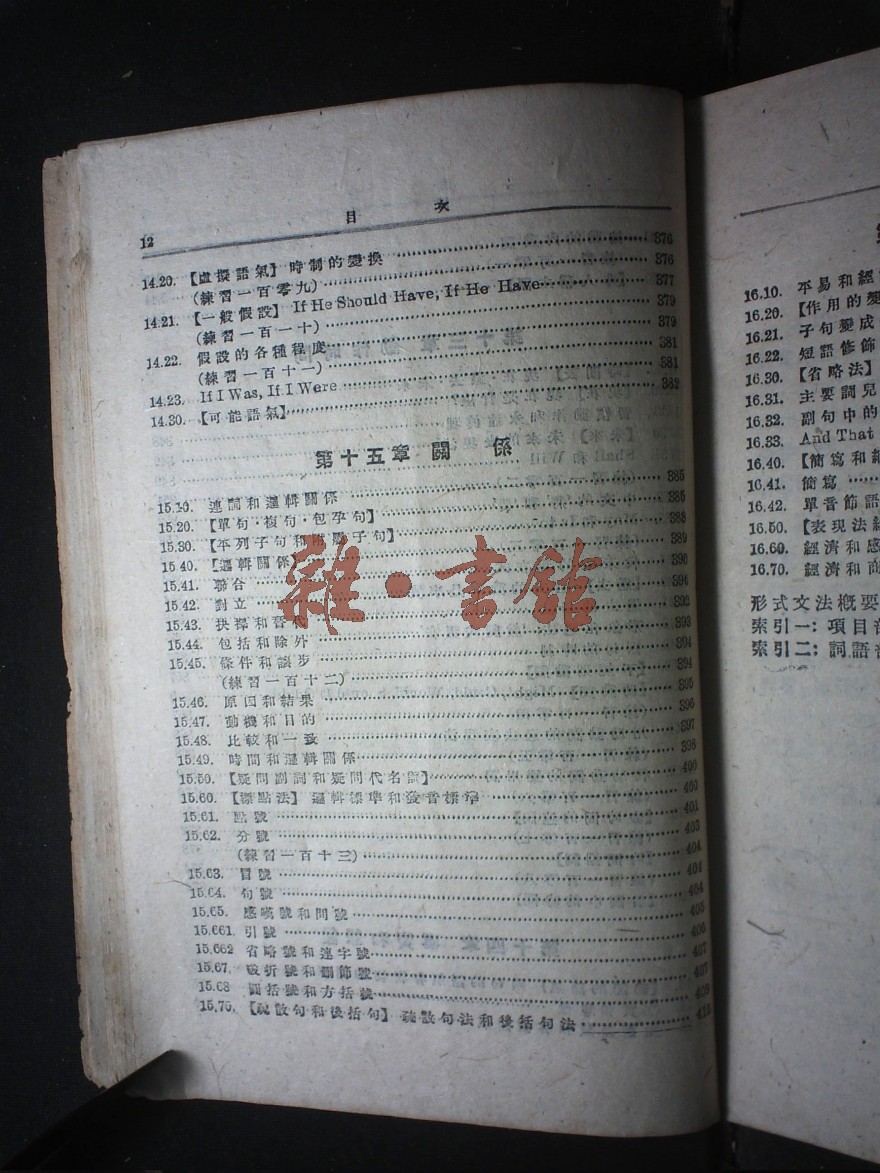 目 次
12
14.20. 【虛擬語氣】 時制的變換 376
(練習一百零九) 376
14.21. 【一般假設】 If He Should Have, If He Have 377
(練習一百一十) 379
14.22. 假設的各種程度 379
(練習一百十一) 381
14.23. If I Was, If I Were 381
14.30. 【可能語氣】 382
第十五章 關 係
15.10. 連詞和邏輯關係 385
15.20. 【單句·複句·包孕句】 385
15.30. 【平列子句和附屬子句】 388
15.40. 【邏輯關係】 389
15.41. 聯合 390
15.42. 對立
15.43. 抉擇和替代 392
15.44. 包括和除外 393
15.45. 條件和讓步 394
(練習一百十二) 394
15.46. 原因和結果 395
15.47. 動機和目的 396
15.48. 比較和一致 397
15.49. 時間和邏輯關係 398
15.50. 【疑問副詞和疑問代名詞】 400
15.60. 【標點法】 邏輯標準和發音標準 400
15.61. 點號 401
15.62. 分號 403
(練習一百十三) 404
15.63. 冒號 404
15.64. 句號 404
15.65. 感嘆號和問號 405
15.661. 引號 406
15.662 省略號和連字號 407
15.67. 破折號和劃節號 407
15.68 圓括號和方括號 409
15.70. 【疏散句和後括句】 疏散句法和後括句法
雜·書館
16.10. 平易和經
16.20. 【作用的變
16.21. 子句變成
16.22. 短語修飾
16.30. 【省略法】
16.31. 主要詞兒
16.32. 副句中的
16.33. And That
16.40. 【簡寫和縮
16.41. 簡寫
16.42. 單音節語
16.50. 【表現法
16.60. 經濟和感
16.70. 經濟和
形式文法概要
索引一: 項目音
索引二: 詞語音